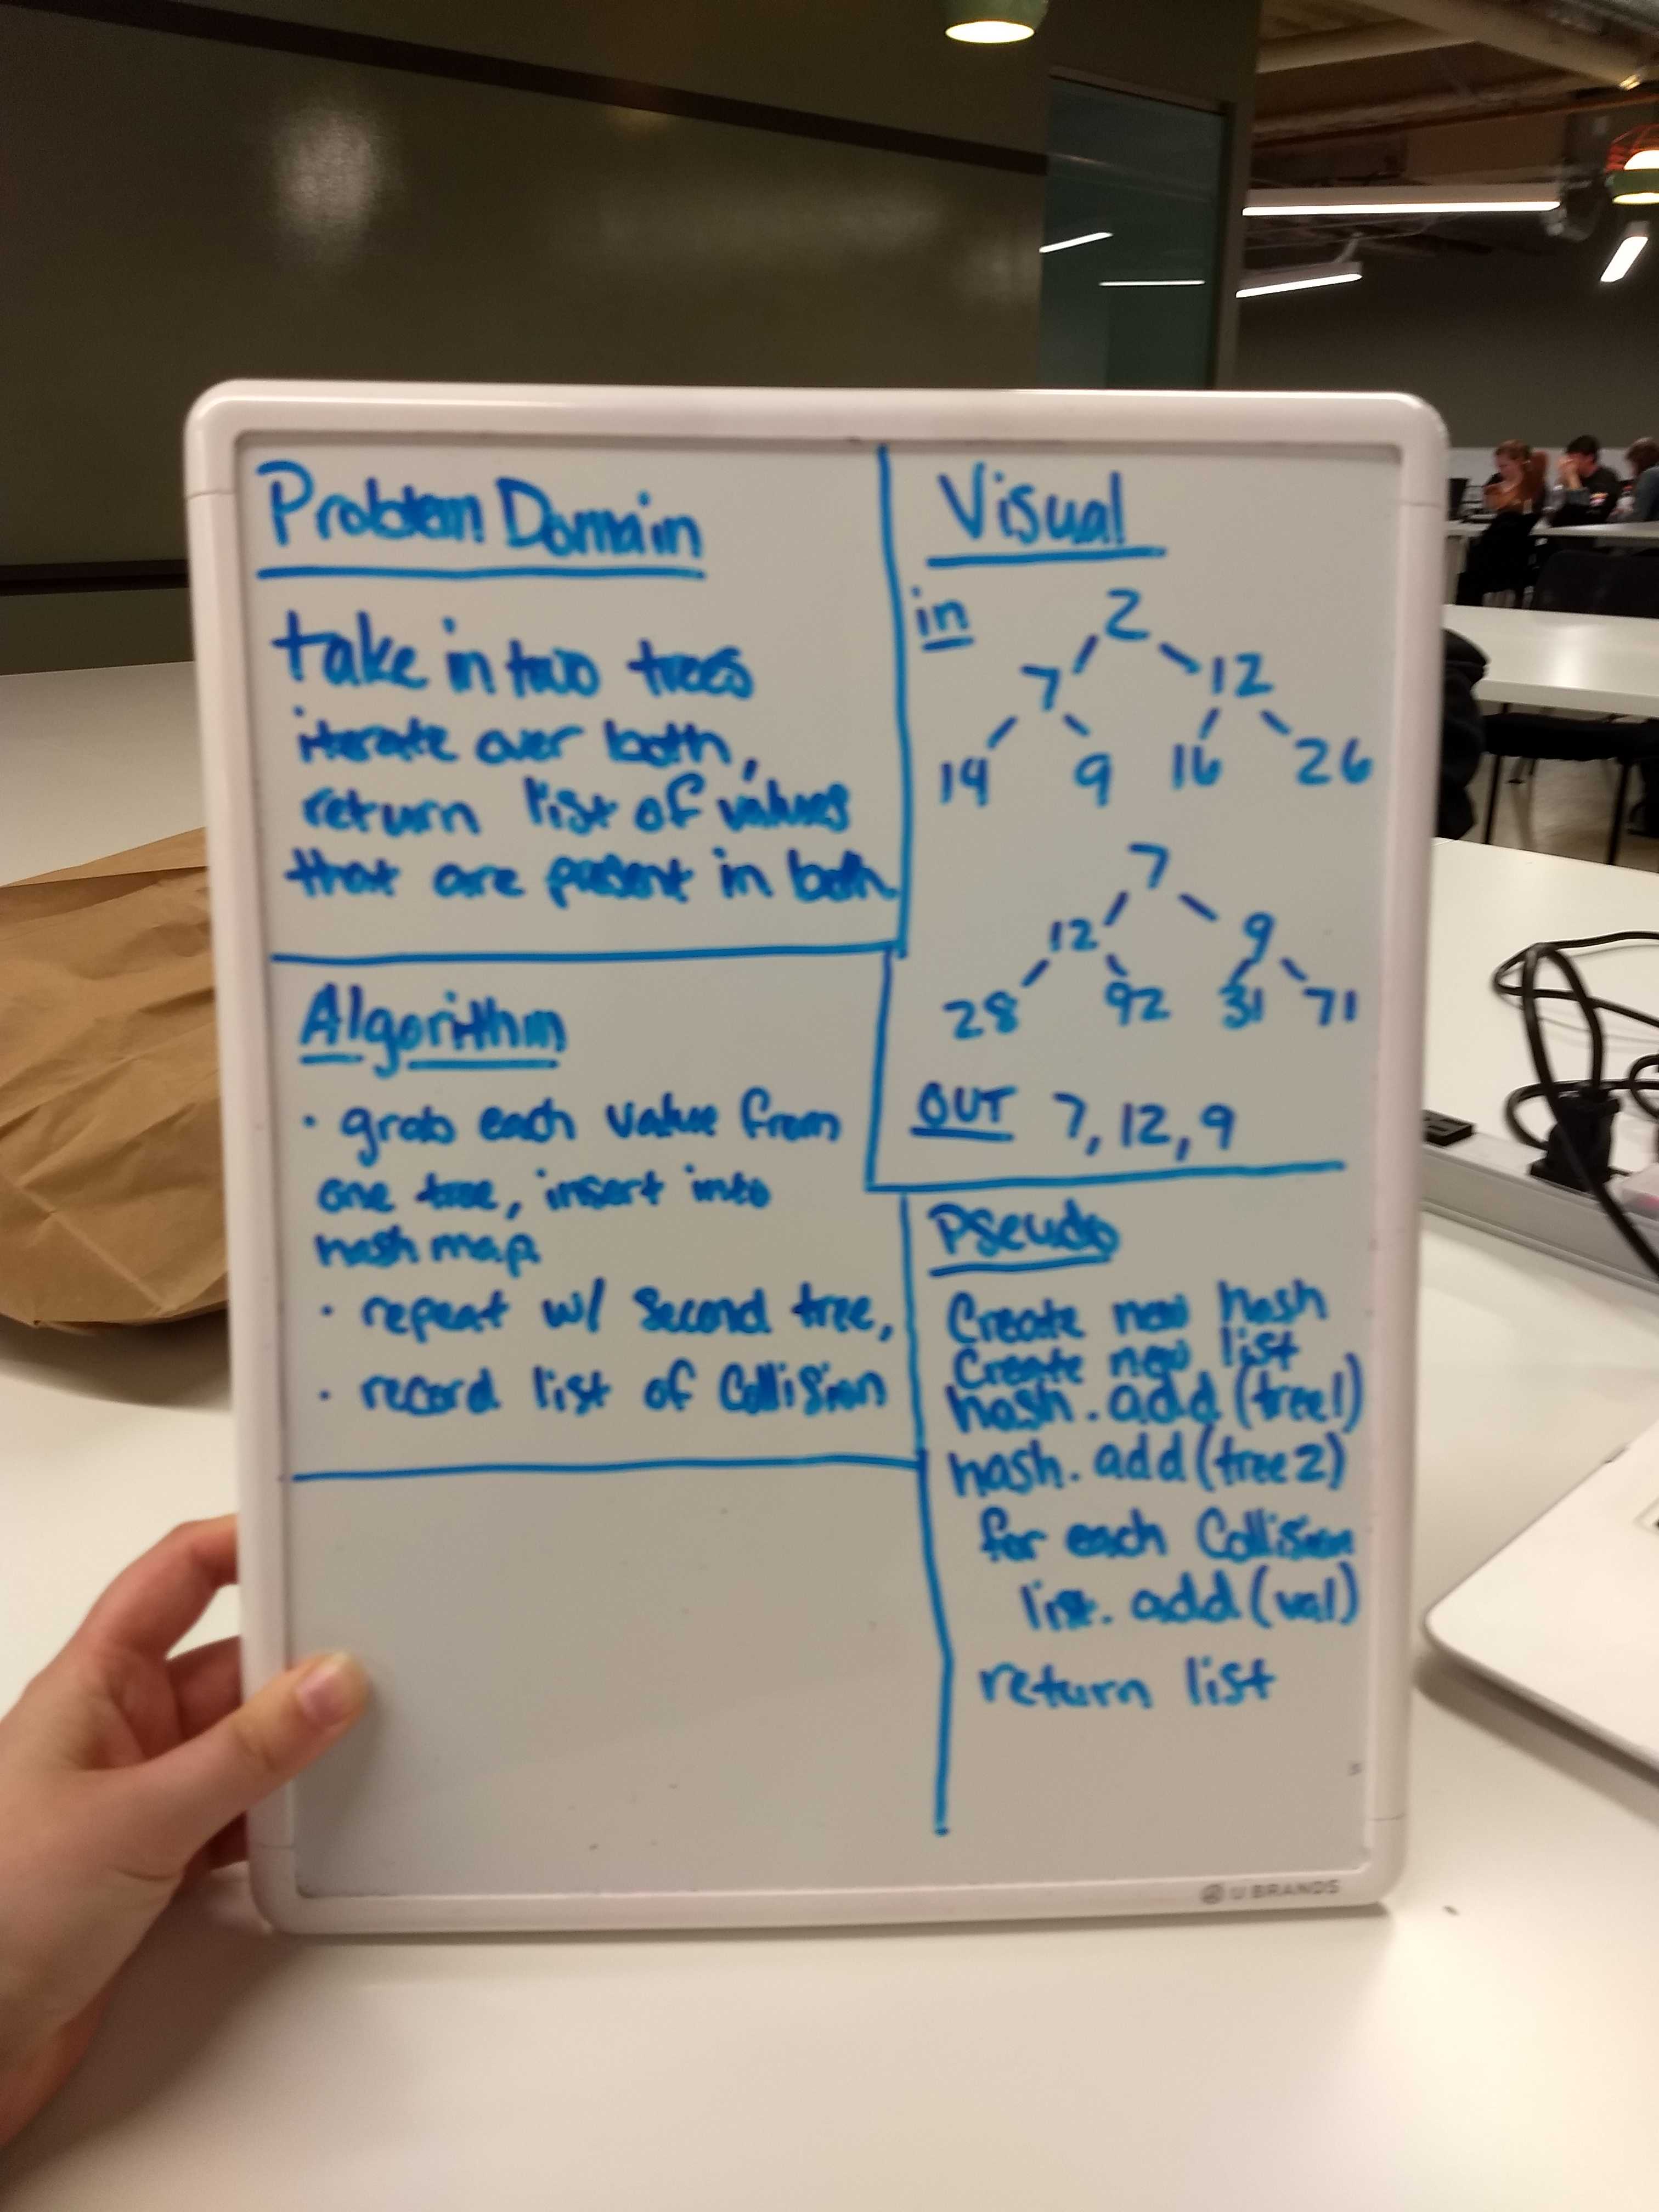 Problem Domain
take in two trees
iterate over both,
return list of values
that are present in both
Algorithm
· grab each value from
one tree, insert into
hash map
· repeat w/ second tree,
· record list of Collision
Visual
in
2
7 12
14 9 16 26
7
12 9
28 92 31 71
OUT 7, 12, 9
Pseudo
Create new hash
Create new list
hash.add(tree1)
hash.add(tree2)
for each Collision
list.add(val)
return list
U BRANDS